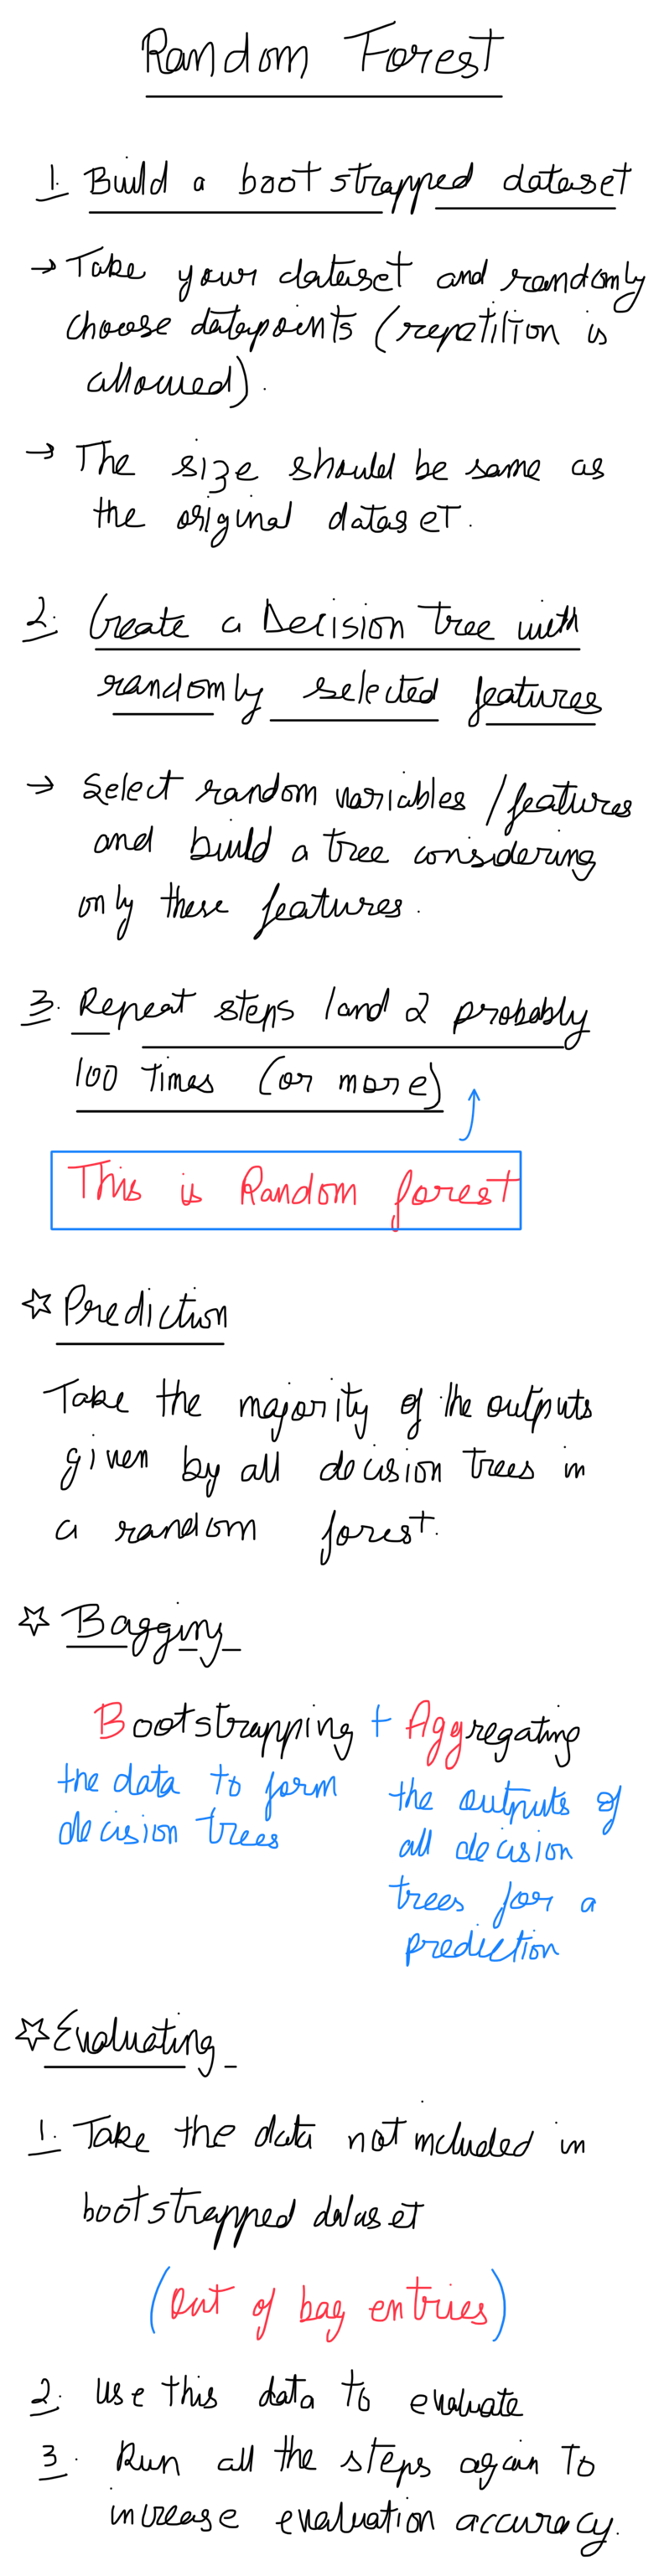 Random Forest
1. Build a bootstrapped dataset
→ Take your dataset and randomly
choose datapoints (repetition is
allowed).
→ The size should be same as
the original dataset.
2. Create a Decision Tree with
randomly selected features
→ Select random variables / features
and build a tree considering
only these features.
3. Repeat steps 1 and 2 probably
100 times (or more)
This is Random forest
☆ Prediction
Take the majority of the outputs
given by all decision trees in
a random forest.
☆ Bagging
Bootstrapping + Aggregating
the data to form
decision trees
the outputs of
all decision
trees for a
prediction
☆ Evaluating
1. Take the data not included in
bootstrapped dataset
(out of bag entries)
2. use this data to evaluate
3. Run all the steps again to
increase evaluation accuracy.